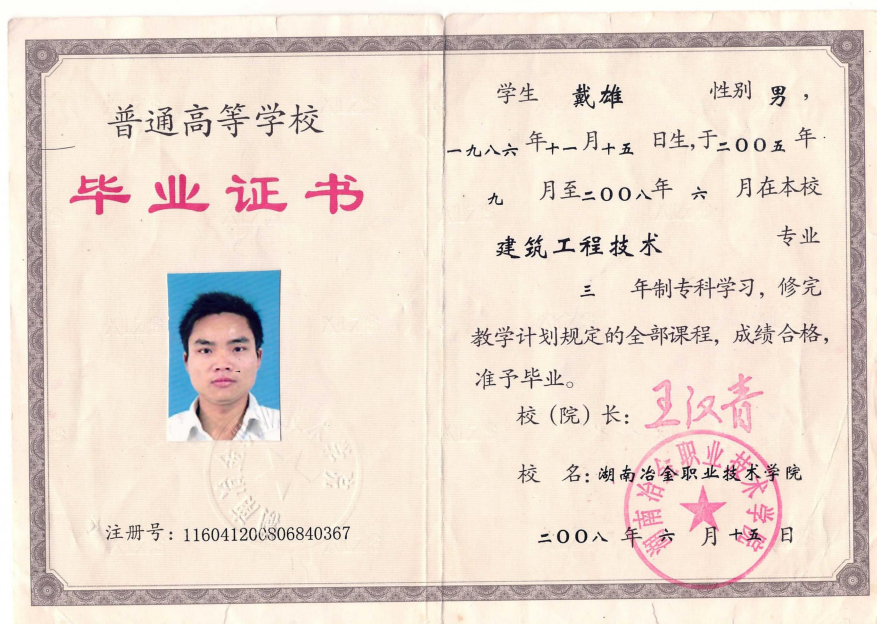 普通高等学校
毕业证书
注册号：116041200806840367
学生 戴雄 性别 男，
一九八六年十一月十五日生，于二00五年
九月至二00八年六月在本校
建筑工程技术 专业
三年制专科学习，修完
教学计划规定的全部课程，成绩合格，
准予毕业。
校（院）长：王汉青
校 名：湖南冶金职业技术学院
二00八年六月十五日
湖南冶金职业技术学院